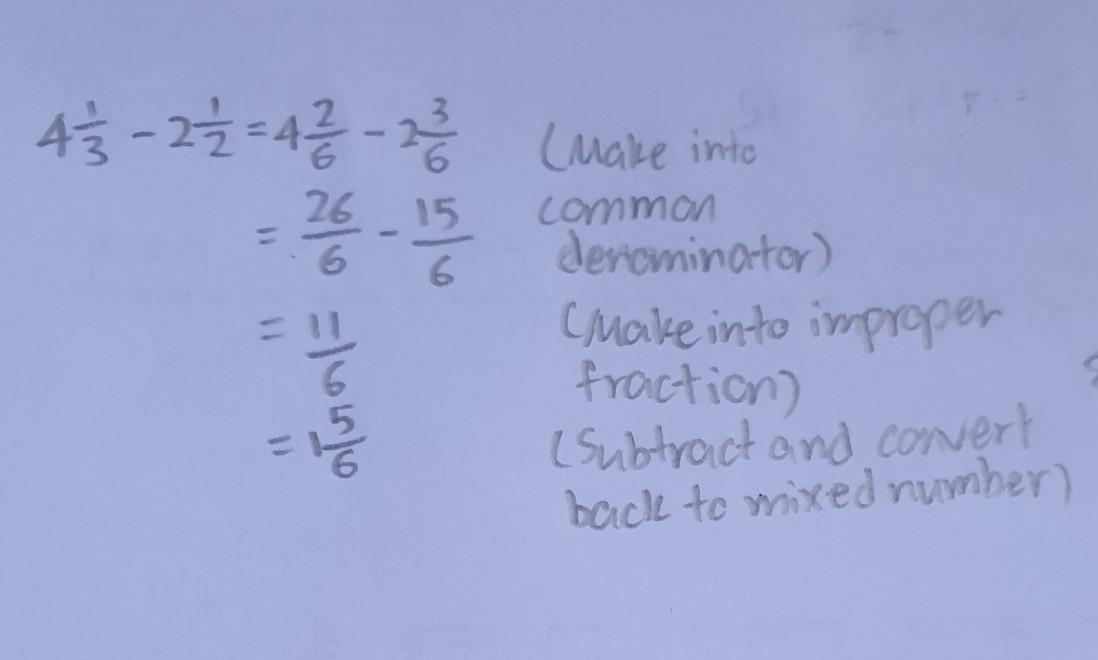 4 1/3 - 2 1/2 = 4 2/6 - 2 3/6 (Make into
= 26/6 - 15/6 common
denominator)
= 11/6 (Make into improper
fraction)
= 1 5/6 (Subtract and convert
back to mixed number)